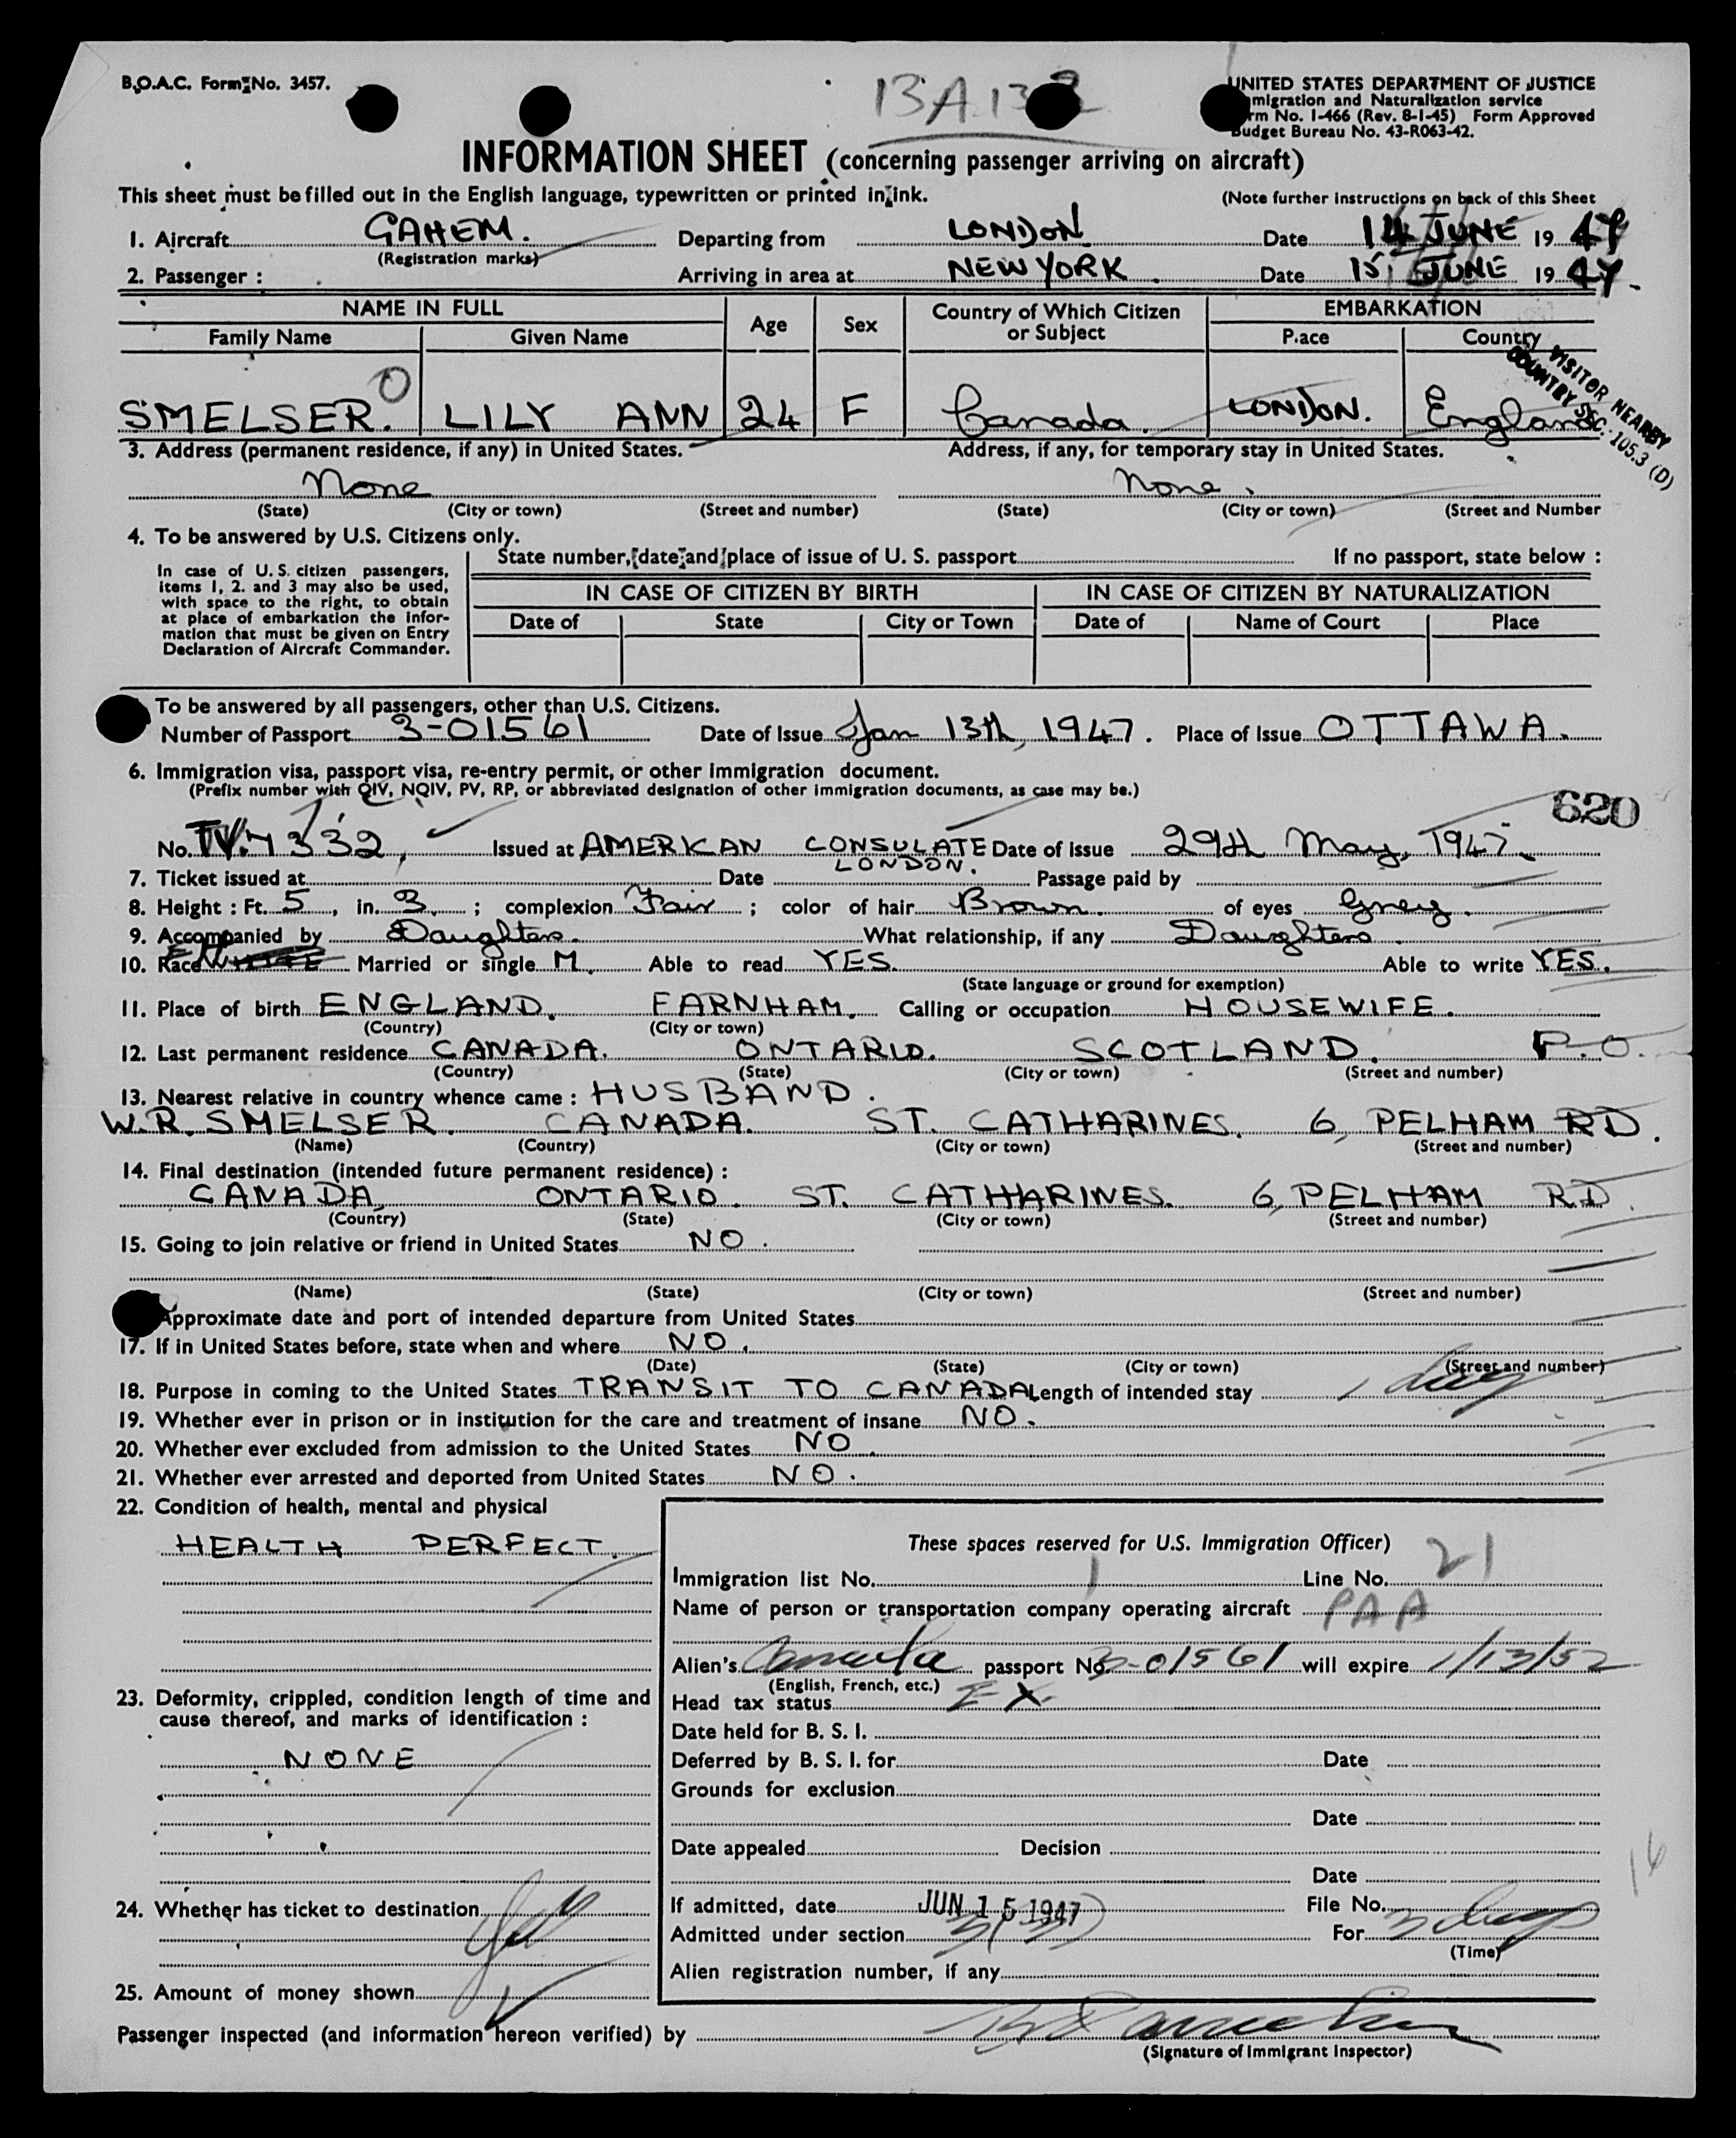 B.O.A.C. Form No. 3457.
13A.13
UNITED STATES DEPARTMENT OF JUSTICE
migration and Naturalization service
rm No. I-466 (Rev. 8-1-45) Form Approved
Budget Bureau No. 43-R063-42.
INFORMATION SHEET (concerning passenger arriving on aircraft)
This sheet must be filled out in the English language, typewritten or printed in ink.
(Note further instructions on back of this Sheet
1. Aircraft GAHEM. Departing from LONDON Date 14 JUNE 19 47
(Registration marks)
2. Passenger : Arriving in area at NEW YORK. Date 15 JUNE 19 47.
NAME IN FULL Age Sex Country of Which Citizen or Subject EMBARKATION
Family Name Given Name P.ace Country
VISITOR NEARBY
COUNTRY SEC. 105.3 (D)
SMELSER. LILY ANN 24 F Canada. LONDON. England
3. Address (permanent residence, if any) in United States. Address, if any, for temporary stay in United States.
None None.
(State) (City or town) (Street and number) (State) (City or town) (Street and Number
4. To be answered by U.S. Citizens only.
State number, date and place of issue of U. S. passport If no passport, state below :
In case of U. S. citizen passengers,
items 1, 2. and 3 may also be used,
with space to the right, to obtain
at place of embarkation the infor-
mation that must be given on Entry
Declaration of Aircraft Commander.
IN CASE OF CITIZEN BY BIRTH IN CASE OF CITIZEN BY NATURALIZATION
Date of State City or Town Date of Name of Court Place
To be answered by all passengers, other than U.S. Citizens.
Number of Passport 3-01561 Date of Issue Jan 13th, 1947. Place of Issue OTTAWA.
6. Immigration visa, passport visa, re-entry permit, or other immigration document.
(Prefix number with QIV, NQIV, PV, RP, or abbreviated designation of other immigration documents, as case may be.)
620
No. 332, Issued at AMERICAN CONSULATE LONDON. Date of issue 29th May, 1947.
7. Ticket issued at Date Passage paid by
8. Height : Ft. 5, in. 3. ; complexion Fair ; color of hair Brown. of eyes Grey.
9. Accompanied by Daughters. What relationship, if any Daughters.
10. Race Married or single M. Able to read YES. Able to write YES.
(State language or ground for exemption)
11. Place of birth ENGLAND. FARNHAM. Calling or occupation HOUSEWIFE.
(Country) (City or town)
12. Last permanent residence CANADA. ONTARIO. SCOTLAND. P.O.
(Country) (State) (City or town) (Street and number)
13. Nearest relative in country whence came : HUSBAND.
W.R. SMELSER. CANADA. ST. CATHARINES. 6, PELHAM RD.
(Name) (Country) (City or town) (Street and number)
14. Final destination (intended future permanent residence) :
CANADA ONTARIO. ST. CATHARINES. 6, PELHAM RD
(Country) (State) (City or town) (Street and number)
15. Going to join relative or friend in United States NO.
(Name) (State) (City or town) (Street and number)
Approximate date and port of intended departure from United States
17. If in United States before, state when and where NO.
(Date) (State) (City or town) (Street and number)
18. Purpose in coming to the United States TRANSIT TO CANADA Length of intended stay 1 day
19. Whether ever in prison or in institution for the care and treatment of insane NO.
20. Whether ever excluded from admission to the United States NO.
21. Whether ever arrested and deported from United States NO.
22. Condition of health, mental and physical
HEALTH PERFECT.
These spaces reserved for U.S. Immigration Officer)
Immigration list No. 1 Line No. 21
Name of person or transportation company operating aircraft PAA
Alien's passport No. 3-01561 will expire 1/13/52
(English, French, etc.)
Head tax status EX.
Date held for B. S. I.
Deferred by B. S. I. for Date
Grounds for exclusion
Date
Date appealed Decision
Date
If admitted, date JUN 15 1947 File No.
Admitted under section 3(3) For 3 days
(Time)
Alien registration number, if any
23. Deformity, crippled, condition length of time and
cause thereof, and marks of identification :
NONE
16
24. Whether has ticket to destination
25. Amount of money shown
Passenger inspected (and information hereon verified) by
(Signature of Immigrant Inspector)